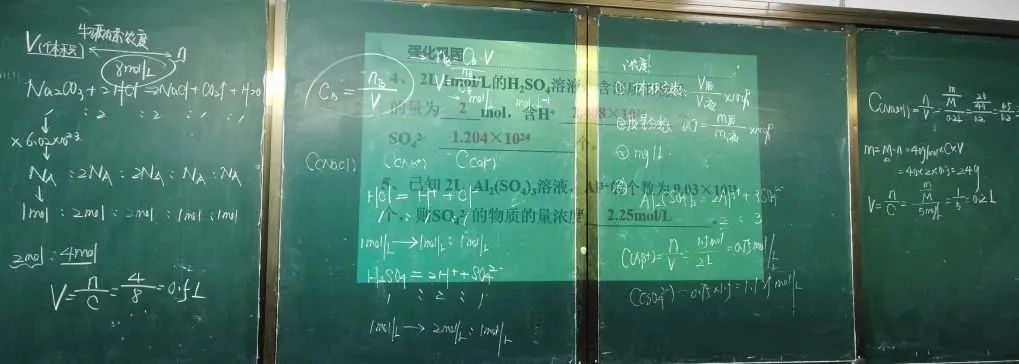 V(体积) 物质的量浓度 n
8mol/L
Na₂CO₃ + 2HCl = 2NaCl + CO₂↑ + H₂O
1 : 2 : 2 : 1 : 1
×6.02×10²³
NA : 2NA : 2NA : NA : NA
1mol : 2mol : 2mol : 1mol : 1mol
2mol : 4mol
V = n/C = 4/8 = 0.5L
强化巩固
n_B = C_B·V
C_B = n_B/V
4、2L 1mol/L的H₂SO₄溶液
的量为 2 mol, 含H⁺ 个
SO₄²⁻ 1.204×10²⁴ 个。
C(NaCl) C(Na⁺) C(Cl⁻)
5、已知 2L Al₂(SO₄)₃溶液, Al³⁺的个数为 9.03×10²³
个, 则SO₄²⁻的物质的量浓度 2.25mol/L
HCl = H⁺ + Cl⁻
1 : 1 : 1
1mol/L → 1mol/L : 1mol/L
H₂SO₄ = 2H⁺ + SO₄²⁻
1 : 2 : 1
1mol/L → 2mol/L : 1mol/L
浓度
①体积分数 V质/V液 ×100%
②质量分数 ω = m质/m液 ×100%
③ mg/L
④
Al₂(SO₄)₃ = 2Al³⁺ + 3SO₄²⁻
2 : 3
C(Al³⁺) = n/V = 1.5mol/2L = 0.75mol/L
C(SO₄²⁻) = 0.75×1.5 = 1.125mol/L
C(NaOH) = n/V = m/M/0.2L
m = M·n = 40g/mol × C×V
= 40×2×0.3 = 24g
V = n/C = m/M/5mol/L = 1/5 = 0.2L